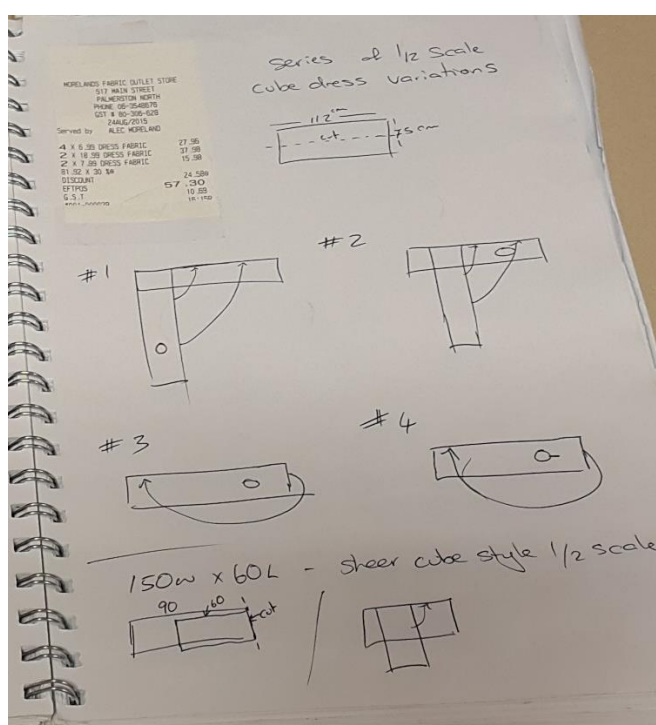 MORELANDS FABRIC OUTLET STORE
517 MAIN STREET
PALMERSTON NORTH
PHONE 06-3548676
GST # 80-306-629
24AUG/2015
Served by ALEC MORELAND
4 X 6.99 DRESS FABRIC 27.96
2 X 18.99 DRESS FABRIC 37.98
2 X 7.99 DRESS FABRIC 15.98
81.92 X 30 %
DISCOUNT 24.58
EFTPOS 57.30
G.S.T 10.69
series of 1/2 scale
cube dress variations
112cm
cut
75cm
#1
#2
#3
#4
150w x 60L - sheer cube style 1/2 scale
90
60
cut